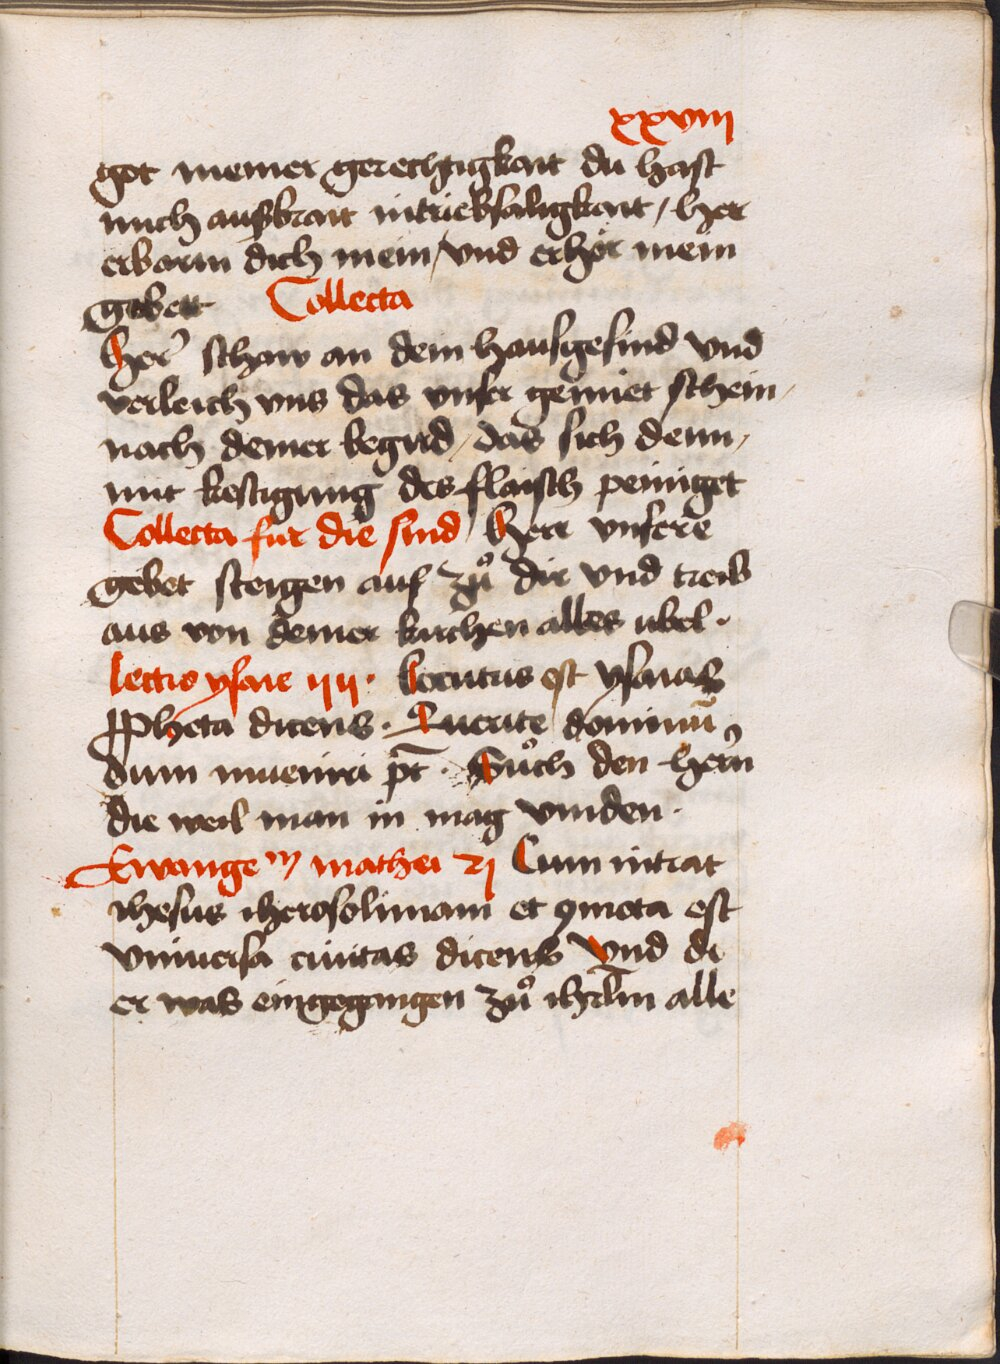 xxviii
got meiner gerechtigkait du hast
mich ausbrait in triebsaligkait / her
erbarm dich mein / vnd erhör mein
gebett Collecta
Her̉ schaw an dein hausgesind vnd
verleich vns das vnser gemiet schein /
nach deiner begird / das sich denn /
mit kestigung des flaisch peiniget
Collecta fur die sind / Herr vnsere
gebet steigen auf zů dir vnd treib
aus von deiner kirchen alles ubel ·
lectio ysaie iiii · Locutus est ysaias
ꝓpheta dicens · Querite dominū
dum inueniri pt̄ · Sůch den hern̉
die weil man in mag vinden ·
Ewangeᵐ mathei 21 Cum intrat
ihesus iherosolimam et ꝯmota est
vniuersa ciuitas dicens Vnd do
er was eingegangen zů ihrl̄m alle